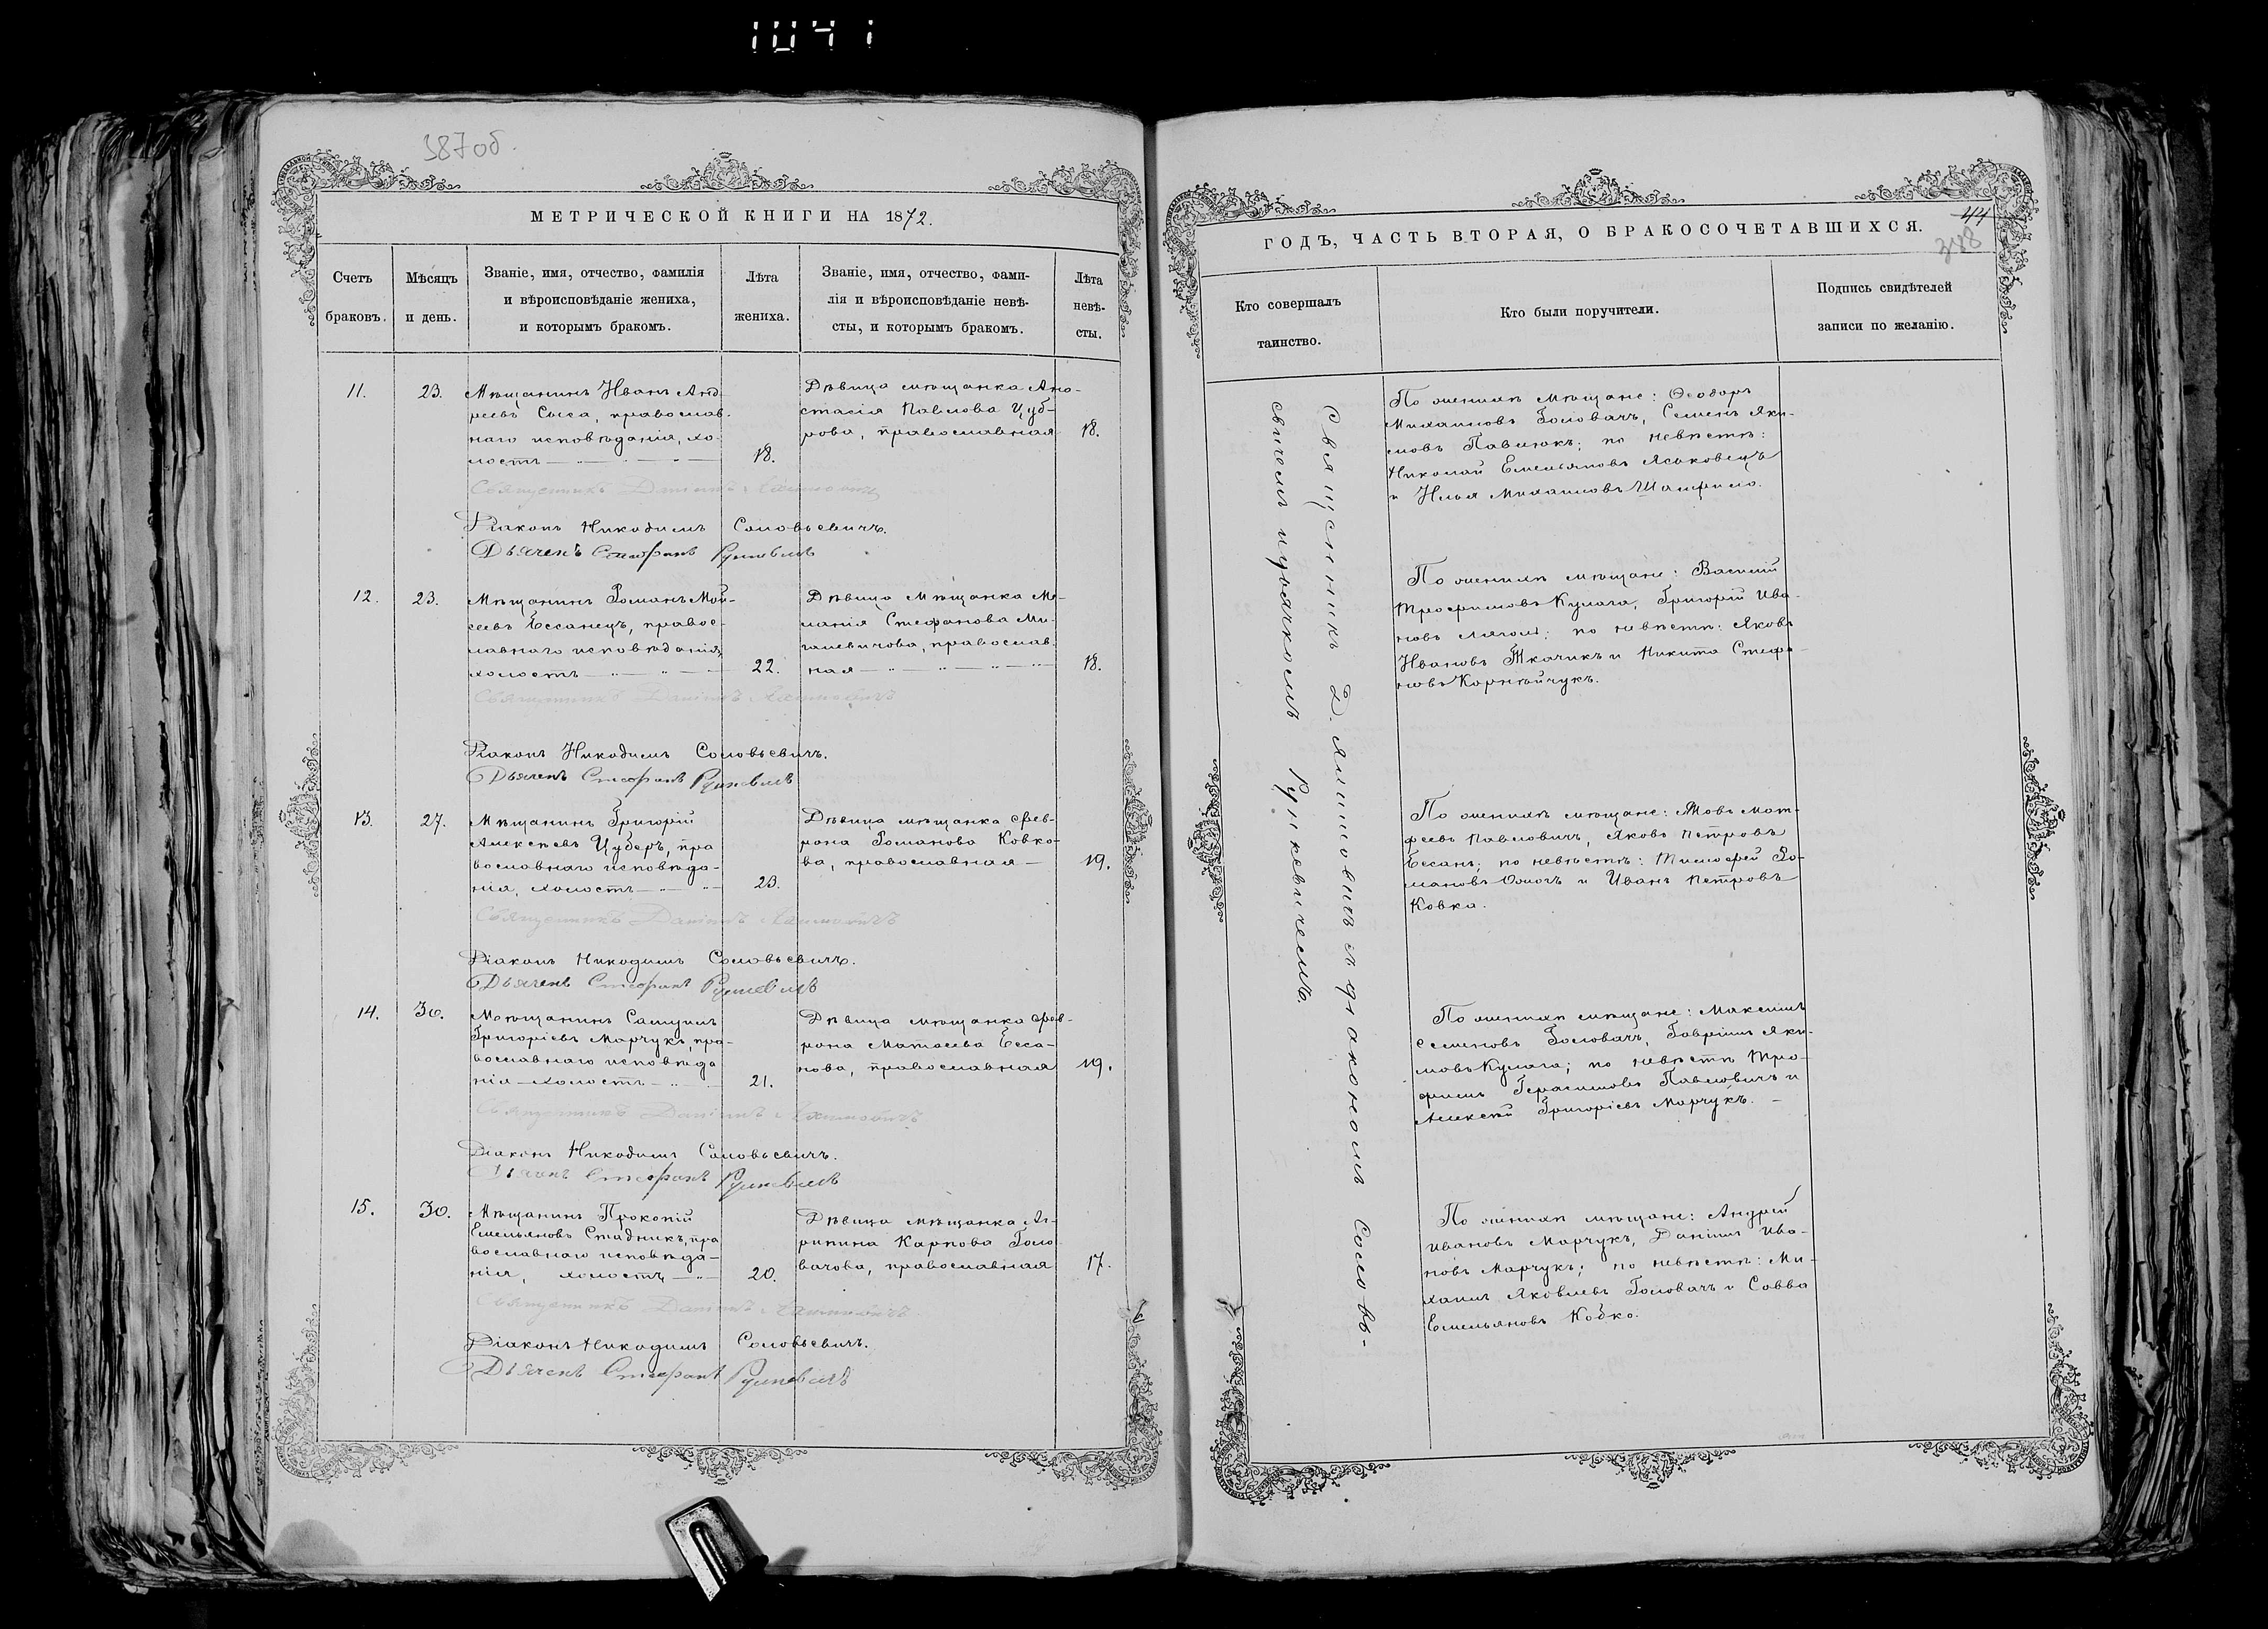 1041
387 об.
МЕТРИЧЕСКОЙ КНИГИ НА 1872.
Счетъ браковъ.
Мѣсяцъ и день.
Званіе, имя, отчество, фамилія
и вѣроисповѣданіе жениха,
и которымъ бракомъ.
Лѣта жениха.
Званіе, имя, отчество, фами-
лія и вѣроисповѣданіе невѣ-
сты, и которымъ бракомъ.
Лѣта невѣ-
сты.
11. 23.
Мѣщанинъ Иванъ Анд-
реевъ Сыса, православ-
наго исповѣданія, хо-
лостъ
18.
Дѣвица мѣщанка Ана-
стасія Павлова Цуб-
рова, православная
18.
Священникъ Даніилъ
Діаконъ Никодимъ Соловьевичъ.
Дьячекъ Стефанъ Рункевичъ
12. 23.
Мѣщанинъ Романъ Мои-
сеевъ Ессанецъ, правос-
лавнаго исповѣданія,
холостъ
22.
Дѣвица Мѣщанка Ме-
ланія Стефанова Ми-
галевичова, православ-
ная
18.
Священникъ Даніилъ
Діаконъ Никодимъ Соловьевичъ.
Дьячекъ Стефанъ Рункевичъ
13. 27.
Мѣщанинъ Григорій
Алексѣевъ Цуберъ, пра
вославнаго исповѣда-
нія, холостъ
23.
Дѣвица мѣщанка Фев-
рона Романова Ковко-
ва, православная
19.
Священникъ Даніилъ
Діаконъ Никодимъ Соловьевичъ.
Дьячекъ Стефанъ Рункевичъ
14. 30.
Мѣщанинъ Самуилъ
Григоріевъ Марчукъ, пра-
вославнаго исповѣда
нія холостъ
21.
Дѣвица мѣщанка Фев-
рона Матвеева Есса-
нова, православная
19.
Священникъ Даніилъ
Діаконъ Никодимъ Соловьевичъ.
Дьячекъ Стефанъ Рункевичъ
15. 30.
Мѣщанинъ Прокопій
Емельяновъ Стадникъ, пра
вославнаго исповѣда-
нія, холостъ
20.
Дѣвица мѣщанка Аг-
рипина Карпова Голо
вачова, православная
17.
Священникъ Даніилъ
Діаконъ Никодимъ Соловьевичъ.
Дьячекъ Стефанъ Рункевичъ
44
388
ГОДЪ, ЧАСТЬ ВТОРАЯ, О БРАКОСОЧЕТАВШИХСЯ.
Кто совершалъ
таинство.
Кто были поручители.
Подпись свидѣтелей
записи по желанію.
Священникъ Д. съ діакономъ Соловь-
евичемъ и дьячкомъ Рункевичемъ.
По женихѣ мѣщане: Ѳеодоръ
Михаиловъ Головачъ, Семенъ Яки-
мовъ Павлюкъ; по невѣстѣ:
Николай Емельяновъ Яськовецъ
и Илья Михаиловъ
По женихѣ мѣщане: Василій
Трофимовъ Кулага, Григорій Ива-
новъ по невѣстѣ: Яковъ
Ивановъ Ткачикъ и Никита Стефа-
новъ Корнѣйчукъ.
По женихѣ мѣщане: Іовъ Мат-
феевъ Павловичъ, Яковъ Петровъ
Ессанъ; по невѣстѣ: Тимофей Ро-
мановъ и Иванъ Петровъ
Ковка.
По женихѣ мѣщане: Максимъ
Семеновъ Головачъ, Гавріилъ Яки-
мовъ Кулага; по невѣстѣ Тро-
фимъ Герасимовъ Павловичъ и
Алексѣй Григоріевъ Марчукъ.
По женихѣ мѣщане: Андрей
Ивановъ Марчукъ, Даніилъ Ива-
новъ Марчукъ; по невѣстѣ: Ми-
хаилъ Яковлевъ Головачъ и Савва
Емельяновъ Ковко.